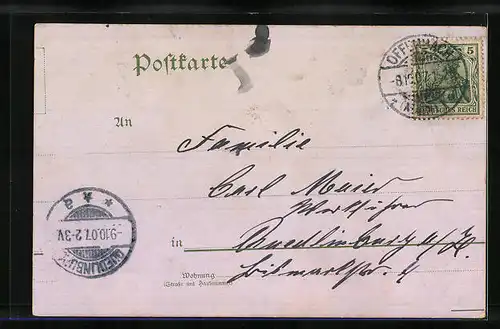 Postkarte
5
DEUTSCHES REICH
OFFENBACH
-8.10.07.
An
Familie
Carl Maier
Werkführer
in Quedlinburg a/H.
Bismarckstr.
Wohnung
(Straße und Hausnummer)
QUEDLINBURG
-9.10.07. 2-3V
* a *